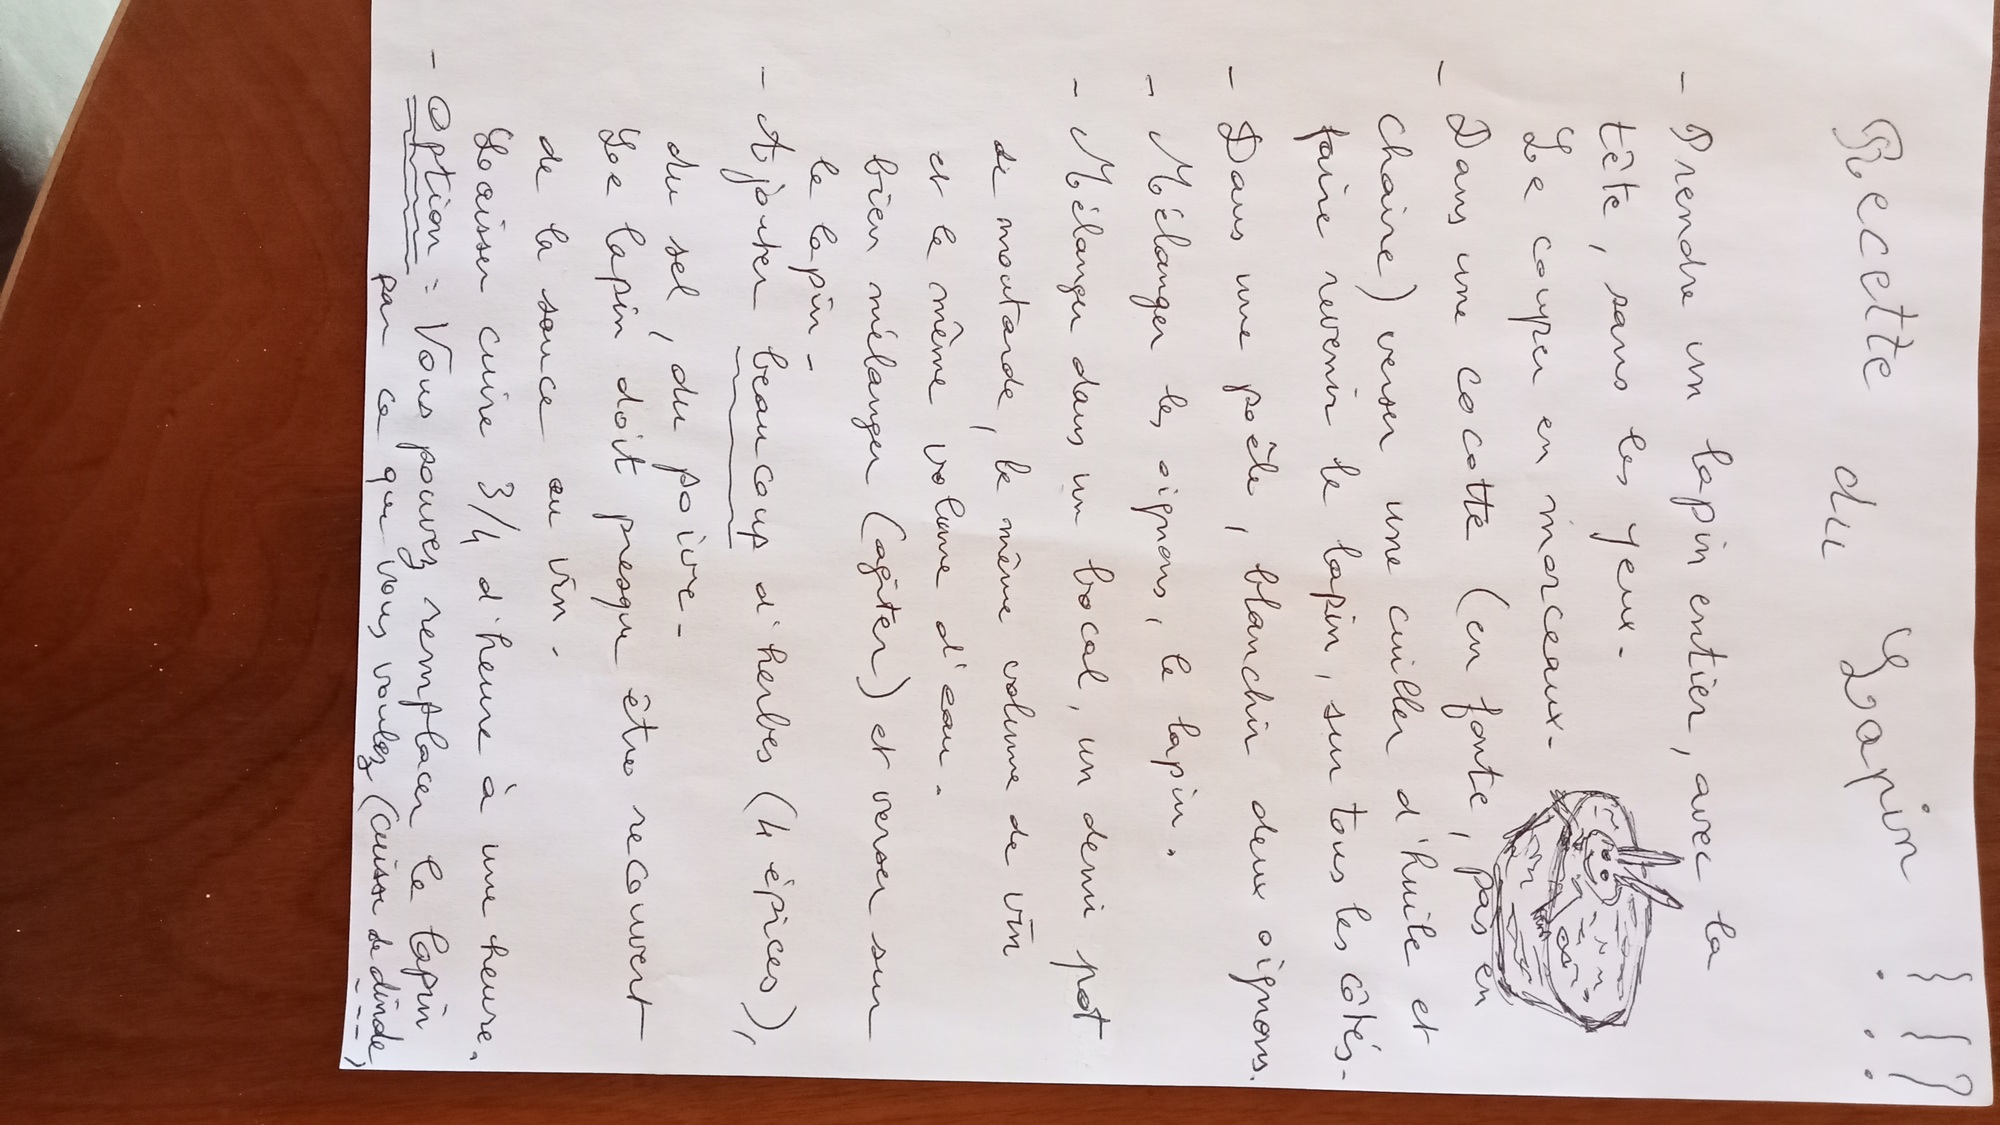 Recette du Lapin !!!
- Prendre un lapin entier, avec la
tête, sans les yeux.
Le couper en morceaux.
- Dans une cocotte (en fonte, pas en
chaire) verser une cuiller d'huile et
faire revenir le lapin, sur tous les côtés.
- Dans une poèle, blanchir deux oignons.
- Mélanger les oignons, le lapin.
- Mélanger dans un bocal, un demi pot
de moutarde, le même volume de vin
et le même volume d'eau.
bien mélanger (agiter) et verser sur
le lapin.
- Ajouter beaucoup d'herbes (4 épices),
du sel, du poivre.
Le lapin doit presque être recouvert
de la sauce au vin.
Laisser cuire 3/4 d'heure à une heure.
- Option : Vous pouvez remplacer le lapin
par ce que vous voulez (cuisse de dinde, ---)